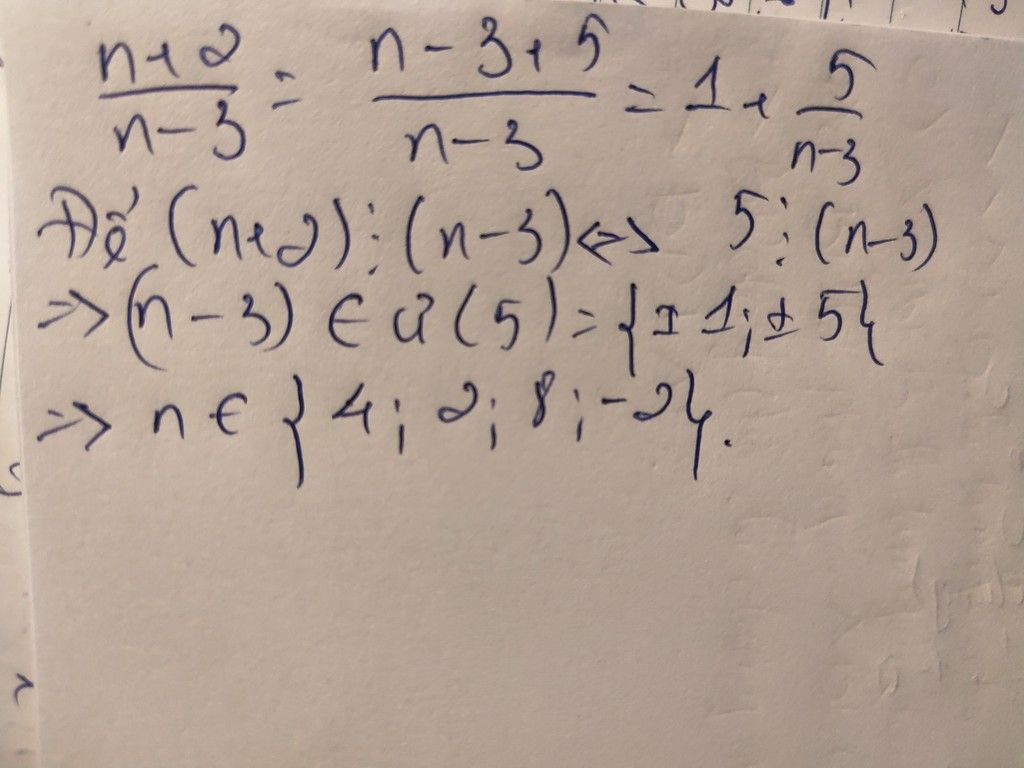 n+2/n-3 = n-3+5/n-3 = 1 + 5/n-3
Để (n+2)⋮(n-3) <=> 5⋮(n-3)
=> (n-3) ∈ Ư(5) = {±1;±5}
=> n ∈ {4;2;8;-2}.